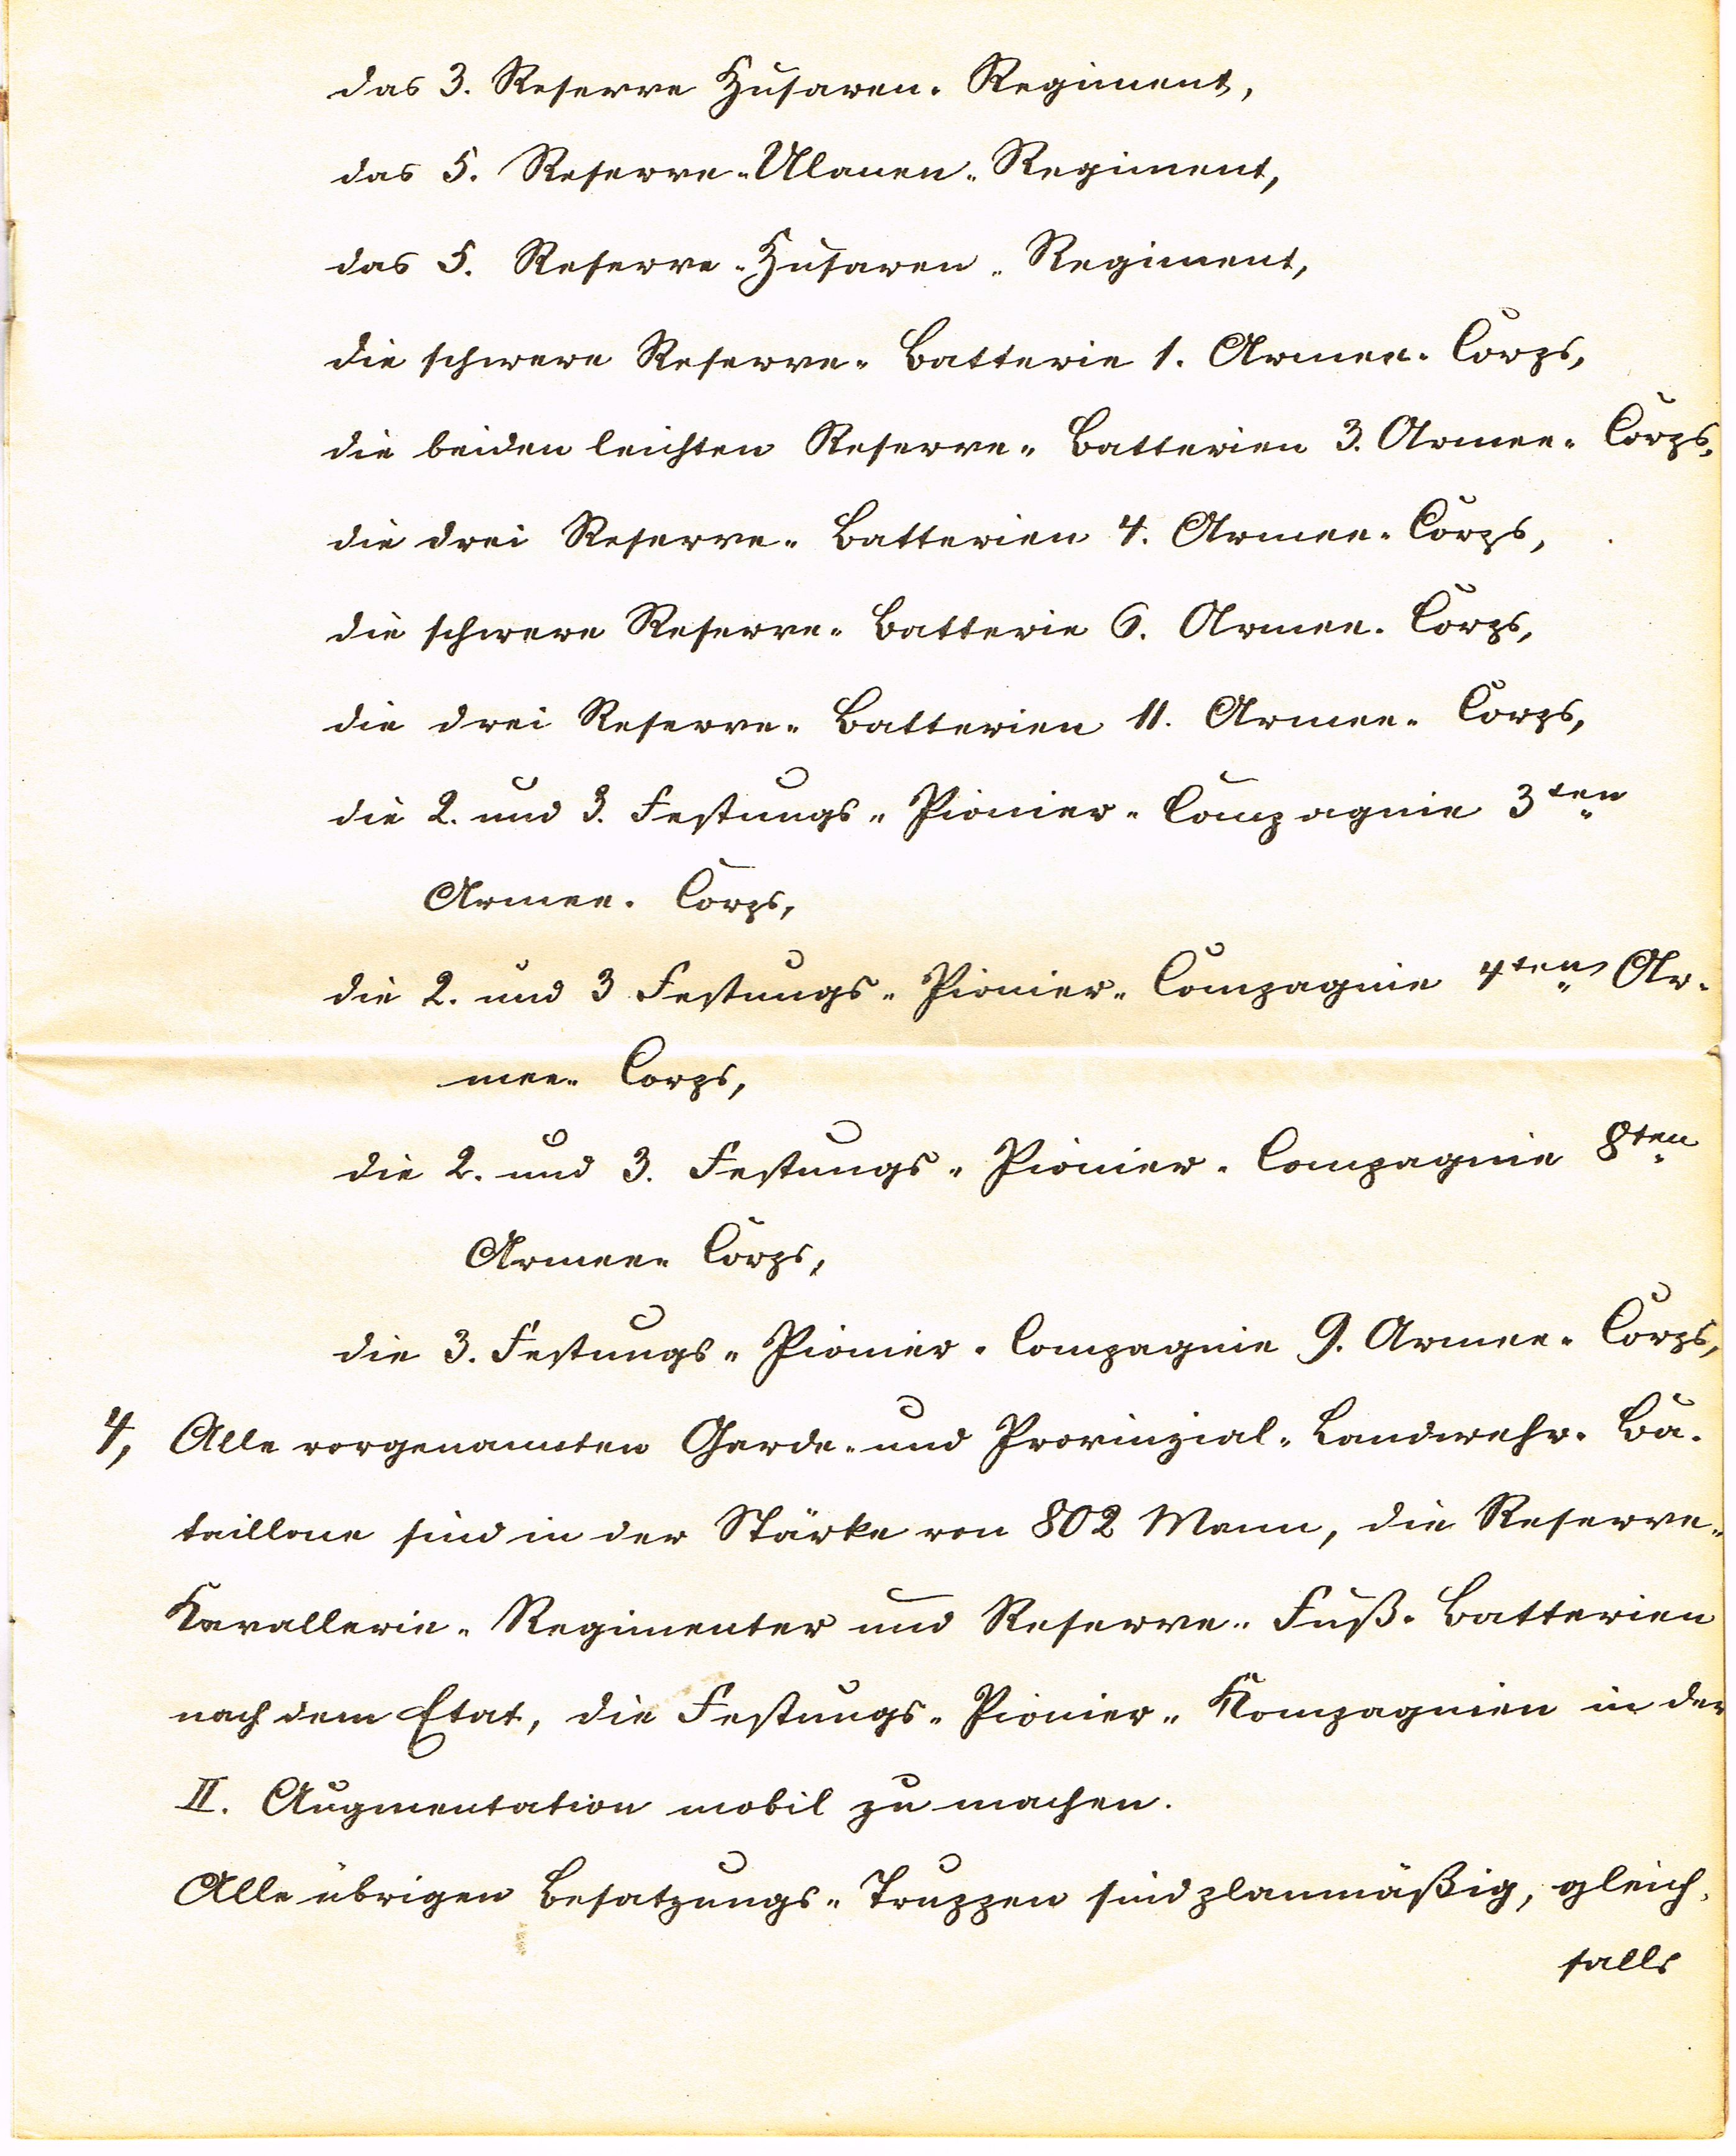 das 3. Reserve Husaren-Regiment,
das 5. Reserve-Ulanen-Regiment,
das 5. Reserve-Husaren-Regiment,
die schwere Reserve-Batterie 1. Armee-Corps,
die beiden leichten Reserve-Batterien 3. Armee-Corps,
die drei Reserve-Batterien 4. Armee-Corps,
die schwere Reserve-Batterie 6. Armee-Corps,
die drei Reserve-Batterien 11. Armee-Corps,
die 2. und 3. Festungs-Pionier-Compagnie 3ten
Armee-Corps,
die 2. und 3 Festungs-Pionier-Compagnie 4ten Ar-
mee-Corps,
die 2. und 3. Festungs-Pionier-Compagnie 8ten
Armee-Corps,
die 3. Festungs-Pionier-Compagnie 9. Armee-Corps,
4, Alle vorgenannten Garde- und Provinzial-Landwehr-Ba-
taillone sind in der Stärke von 802 Mann, die Reserve-
Kavallerie-Regimenter und Reserve-Fuß-Batterien
nach dem Etat, die Festungs-Pionier-Kompagnien in der
II. Augmentation mobil zu machen.
Alle übrigen Besatzungs-Truppen sind planmäßig, gleich-
falls